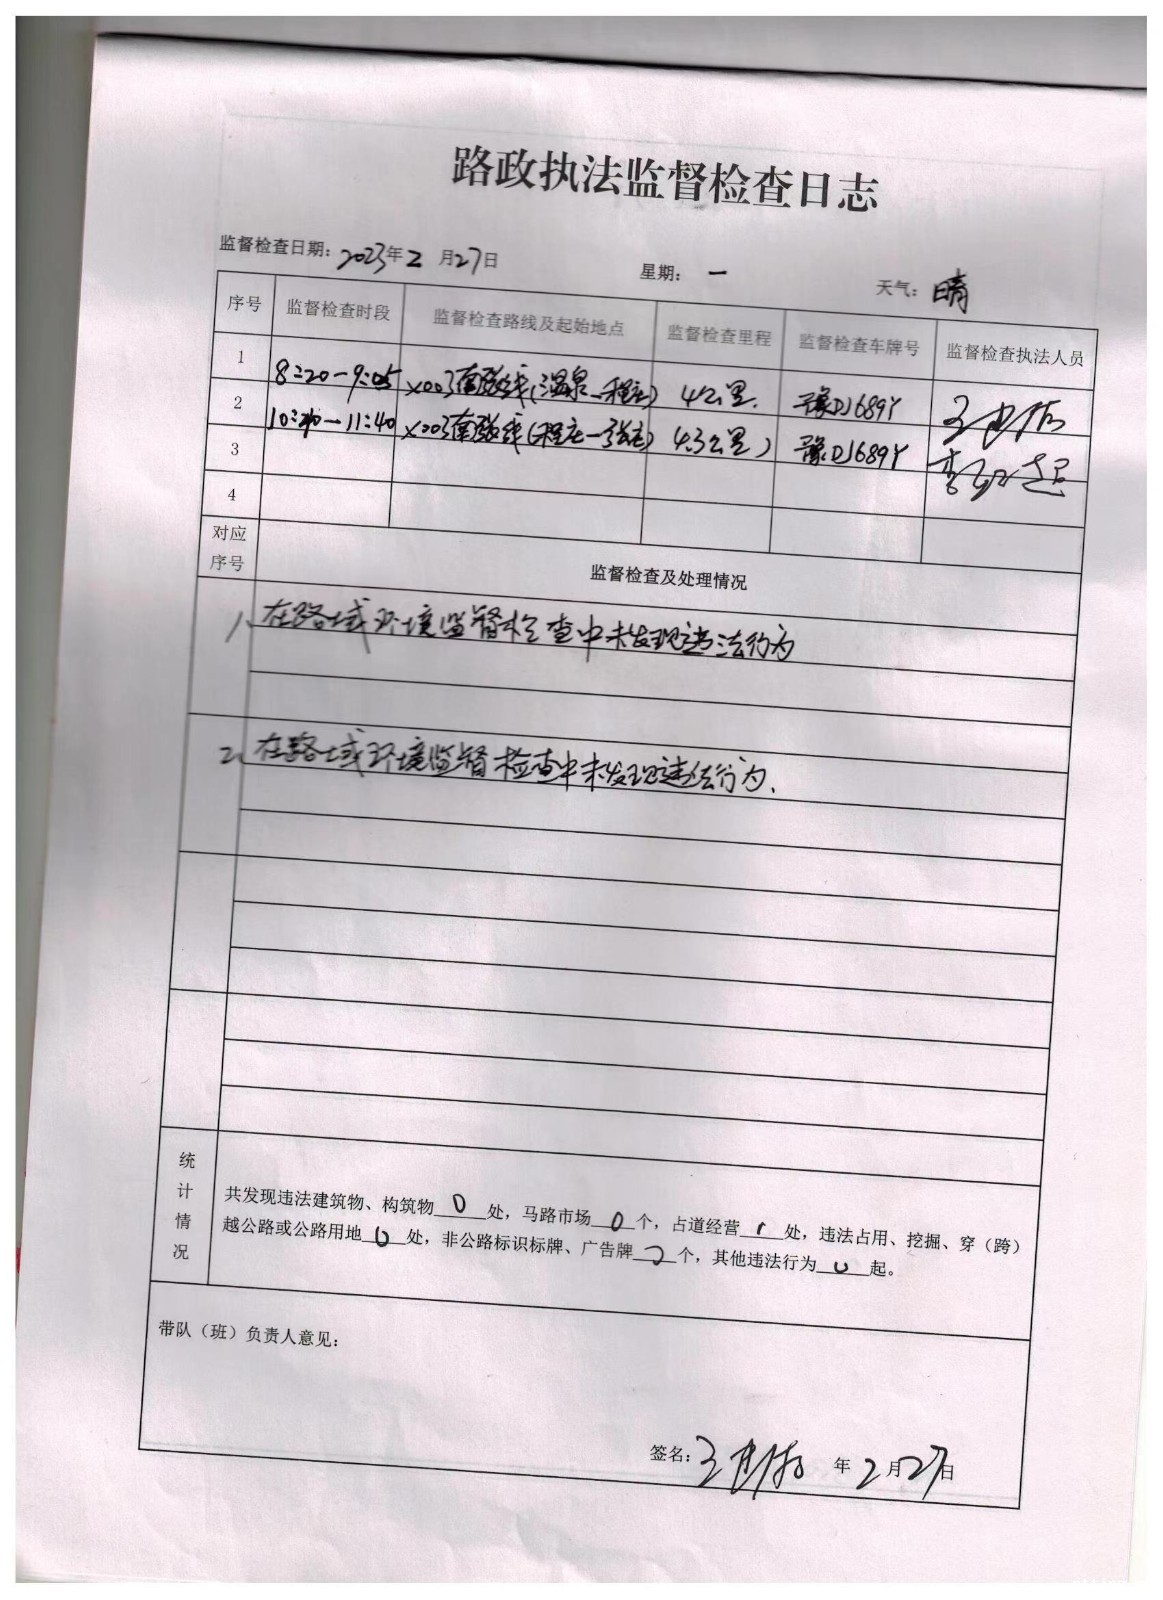 路政执法监督检查日志
监督检查日期：2023年2月27日 星期：一 天气：晴
序号 监督检查时段 监督检查路线及起始地点 监督检查里程 监督检查车牌号 监督检查执法人员
1 8:20-9:05 X003南张线(温泉-程庄) 4公里. 豫DJ689Y
2 10:20-11:40 X003南张线(程庄-张庄) 4.3公里) 豫DJ689Y
3
4
对应序号 监督检查及处理情况
1、在路域环境监督检查中未发现违法行为
2、在路域环境监督检查中未发现违法行为.
统计情况
共发现违法建筑物、构筑物0处，马路市场0个，占道经营1处，违法占用、挖掘、穿（跨）
越公路或公路用地0处，非公路标识标牌、广告牌2个，其他违法行为0起。
带队（班）负责人意见：
签名： 年2月27日